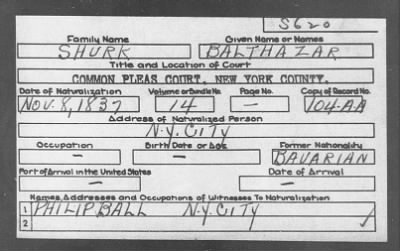 S620
Family Name Given Name or Names
SHURK BALTHAZAR
Title and Location of Court
COMMON PLEAS COURT, NEW YORK COUNTY.
Date of Naturalization Volume or Bundle No. Page No. Copy of Record No.
NOV. 8, 1837 14 — 104-AA
Address of Naturalized Person
N.Y. CITY
Occupation Birth Date or Age Former Nationality
— — BAVARIAN
Port of Arrival in the United States Date of Arrival
— —
Names, Addresses and Occupations of Witnesses To Naturalization
1 PHILIP BALL N.Y. CITY
2